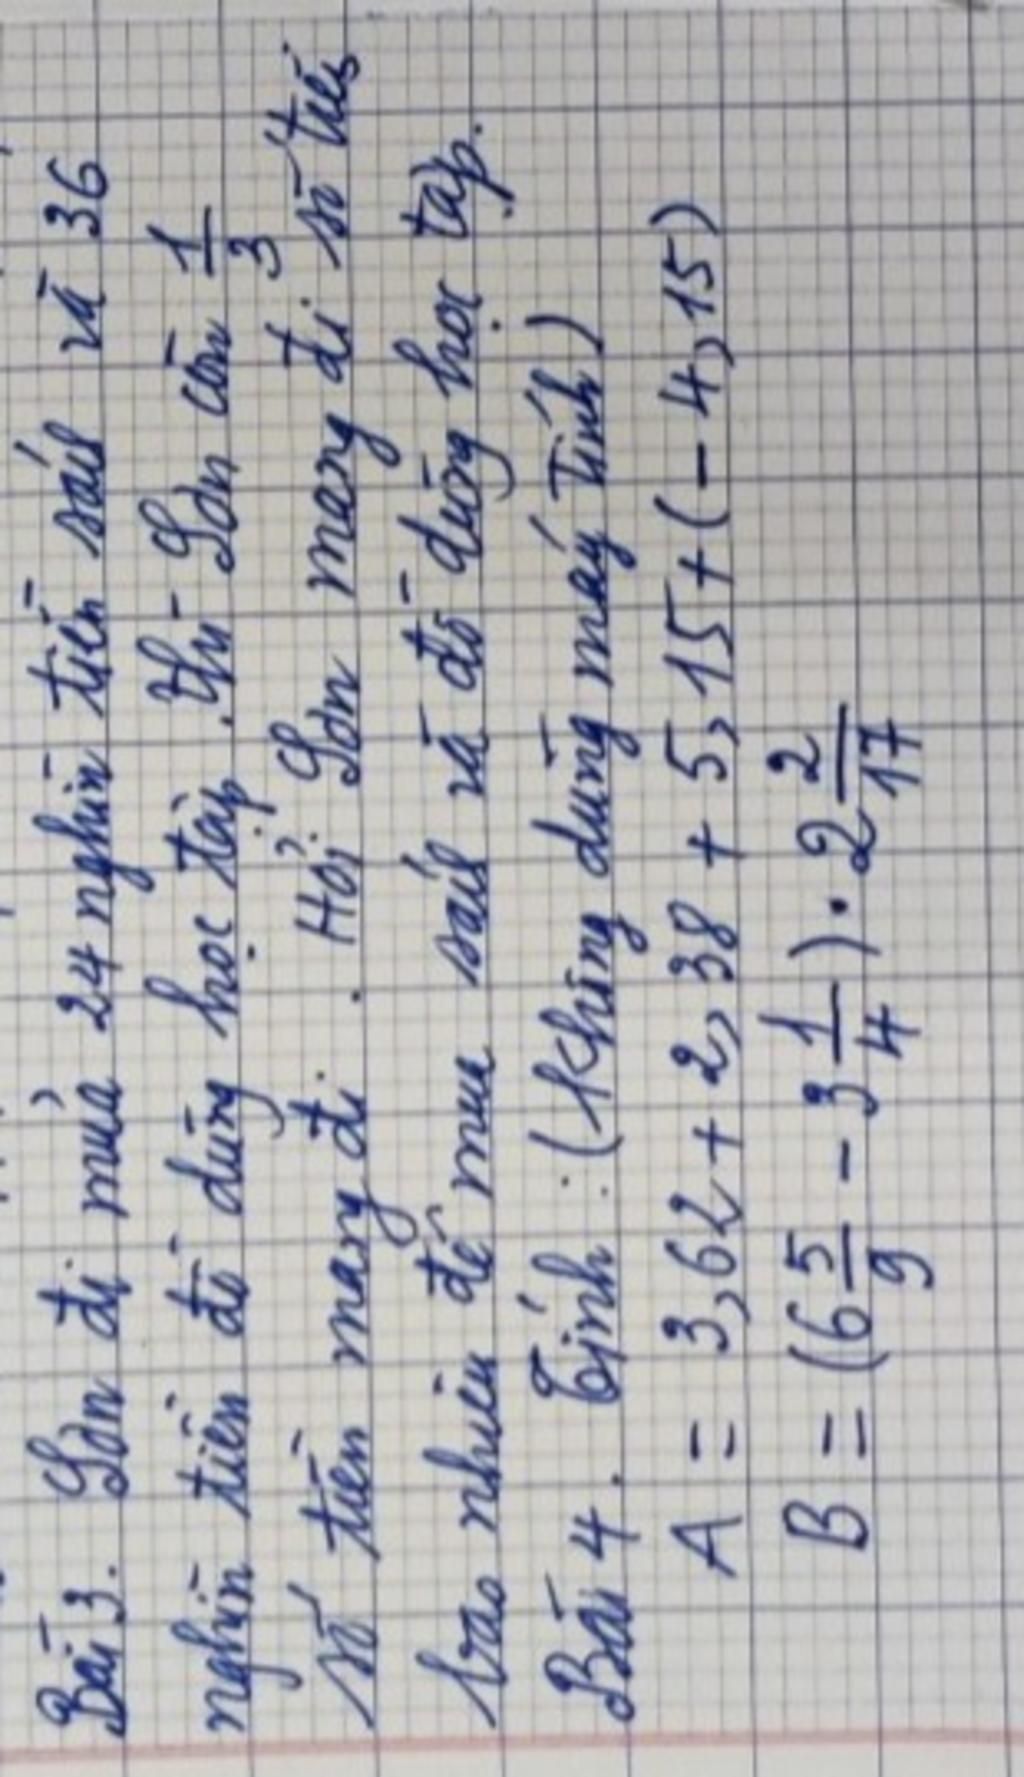 Bài 3. Sơn đi mua 24 nghìn tiền sách và 36
nghìn tiền đồ dùng học tập. Thì Sơn còn 1/3
số tiền mang đi. Hỏi Sơn mang đi số tiền
bao nhiêu để mua sách và đồ dùng học tập.
Bài 4. Tính : (Không dùng máy tính)
A = 3,62 + 2,38 + 5,15 + (- 4,15)
B = (6 5/9 - 3 1/4) . 2 2/17